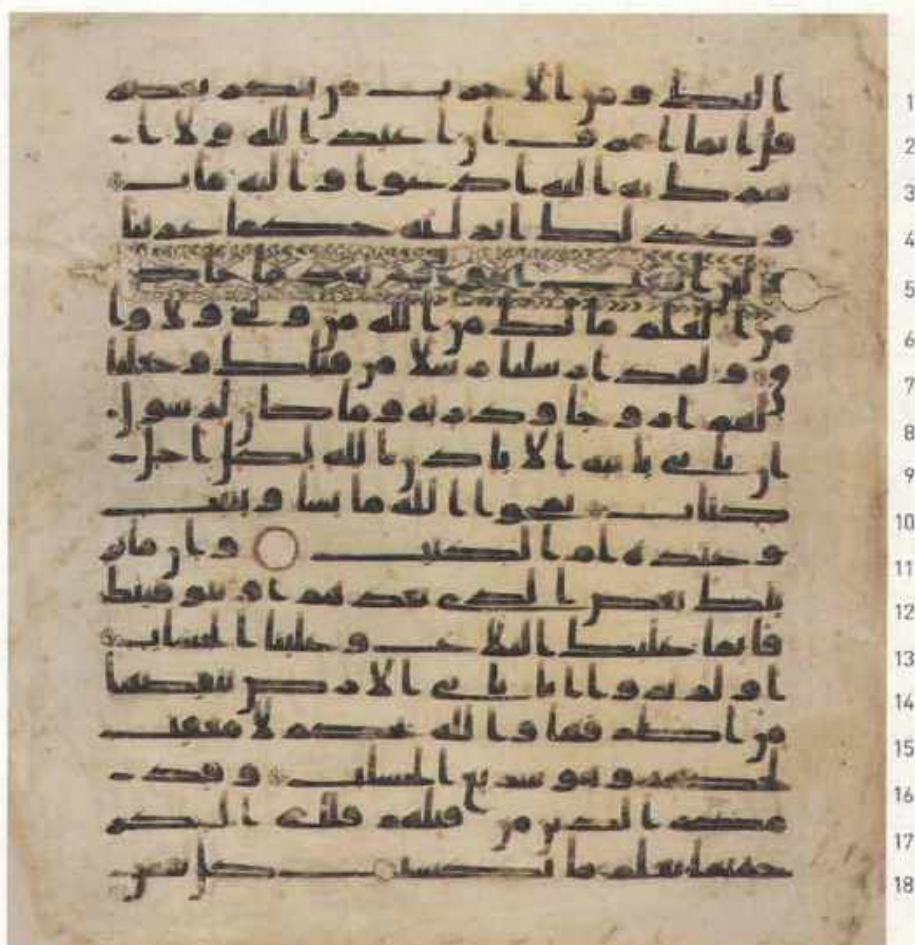 اليك ومن الاحزب من ينكر بعضه 1
قل انما امرت ان اعبد الله ولا ا 2
شرك به اليه ادعوا واليه ماب 3
وكذلك انزلنه حكما عربيا 4
ولئن اتبعت اهواهم بعد ما جاك 5
من العلم ما لك من الله من ولي ولا وا 6
ق ولقد ارسلنا رسلا من قبلك وجعلنا 7
لهم ازوجا وذرية وما كان لرسول 8
ان ياتي باية الا باذن الله لكل اجل 9
كتاب يمحوا الله ما يشا ويثبت 10
وعنده ام الكتب وان ما نر 11
ينك بعض الذي نعدهم او نتوفينك 12
فانما عليك البلاغ وعلينا الحساب 13
اولم يروا انا ناتي الارض ننقصها 14
من اطرافها والله يحكم لا معقب 15
لحكمه وهو سريع الحساب وقد 16
مكر الذين من قبلهم فلله المكر 17
جميعا يعلم ما تكسب كل نفس 18